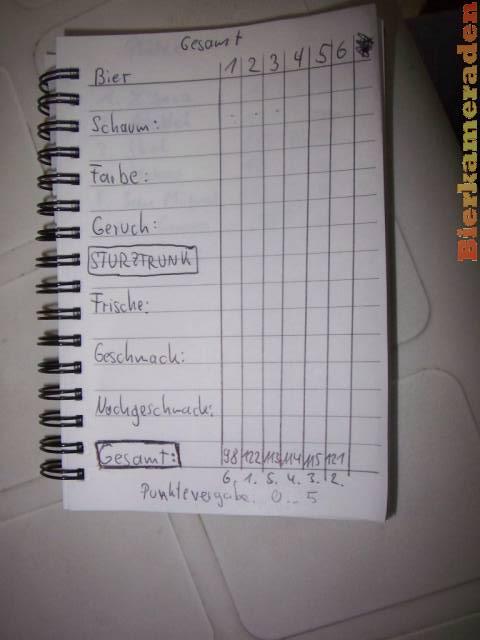 Gesamt
Bier 1 2 3 4 5 6
Schaum:
Farbe:
Geruch:
STURZTRUNK
Frische:
Geschmack:
Nachgeschmack:
Gesamt: 98 122 113 114 115 121
6. 1. 5. 4. 3. 2.
Punktevergabe: 0...5
Bierkameraden